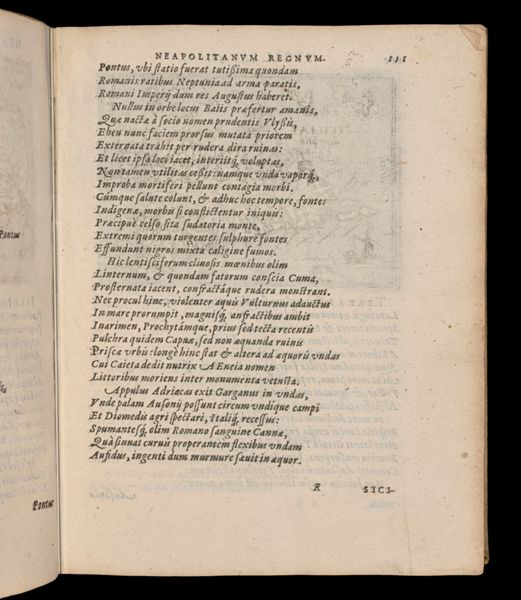 NEAPOLITANVM REGNVM. 111
Pontus, vbi ſtatio fuerat tutißima quondam
Romanis ratibus Neptunia ad arma paratis,
Romani Imperij dum res Auguſtus haberet.
Nullus in orbe locus Baiis præfertur amœnis,
Quæ nactæ à ſocio nomen prudentis Vlyßis,
Eheu nunc faciem prorſus mutata priorem
Externata trahit per rudera dira ruinas:
Et licet ipſa loci iacet, interiitq́; voluptas,
Non tamen vtilitas ceßit: namque vnda vaporq́;,
Improba mortiferi pellunt contagia morbi.
Cúmque ſalute colunt, & adhuc hoc tempore, fontes
Indigenæ, morbis ſi conflictentur iniquis:
Præcipuè celſo ſita ſudatoria monte,
Extremi quorum turgentes ſulphure fontes
Effundunt nigros mixta caligine fumos.
Hic lentiſciferum cliuoſis mœnibus olim
Linternum, & quondam fatorum conſcia Cuma,
Proſternata iacent, confractáque rudera monſtrant.
Nec procul hinc, violenter aquis Vulturnus adauctus
In mare prorumpit, magniſq́; anfractibus ambit
Inarimen, Prochytámque, prius ſed tecta recentis
Pulchra quidem Capuæ, ſed non æquanda ruinis
Priſcæ vrbis: longè hinc ſtat & altera ad æquoris vndas
Cui Caieta dedit nutrix AEneia nomen
Littoribus moriens inter monumenta vetuſta.
Appulus Adriacas exit Garganus in vndas,
Vnde palam Auſonij poſſunt circum vndique campi
Et Diomedis agri ſpectari, Italiq́; receſſus:
Spumanteſq́; olim Romano ſanguine Cannæ,
Quà ſinuat curuis properantem flexibus vndam
Aufidus, ingenti dum murmure ſæuit in æquor.
R SICI-
Pontus
Pontus